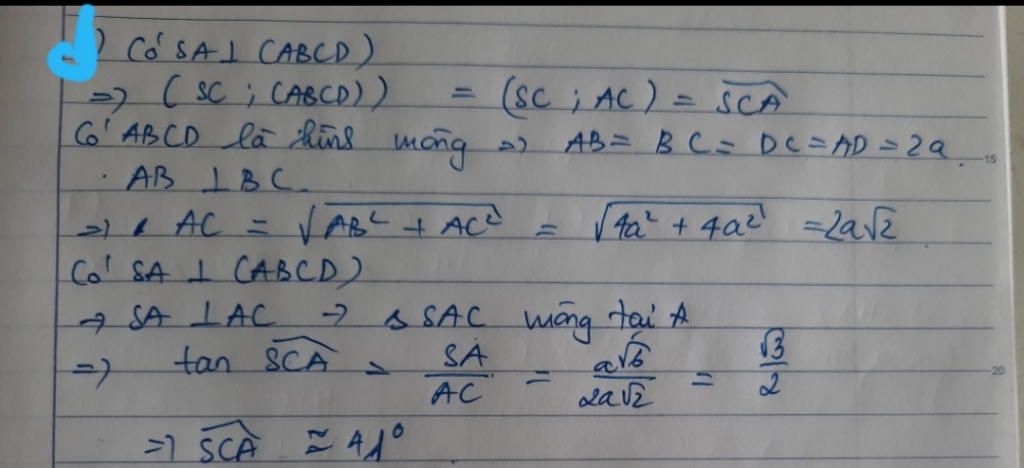 d) Có SA ⊥ (ABCD)
=> (SC ; (ABCD)) = (SC ; AC) = \widehat{SCA}
Có ABCD là hình vuông => AB = BC = DC = AD = 2a.
15
. AB ⊥ BC.
=> AC = √(AB² + AC²) = √(4a² + 4a²) = 2a√2
Có SA ⊥ (ABCD)
→ SA ⊥ AC → Δ SAC vuông tại A
=> tan \widehat{SCA} = SA/AC = a√6/2a√2 = √3/2
20
=> \widehat{SCA} ≈ 41°